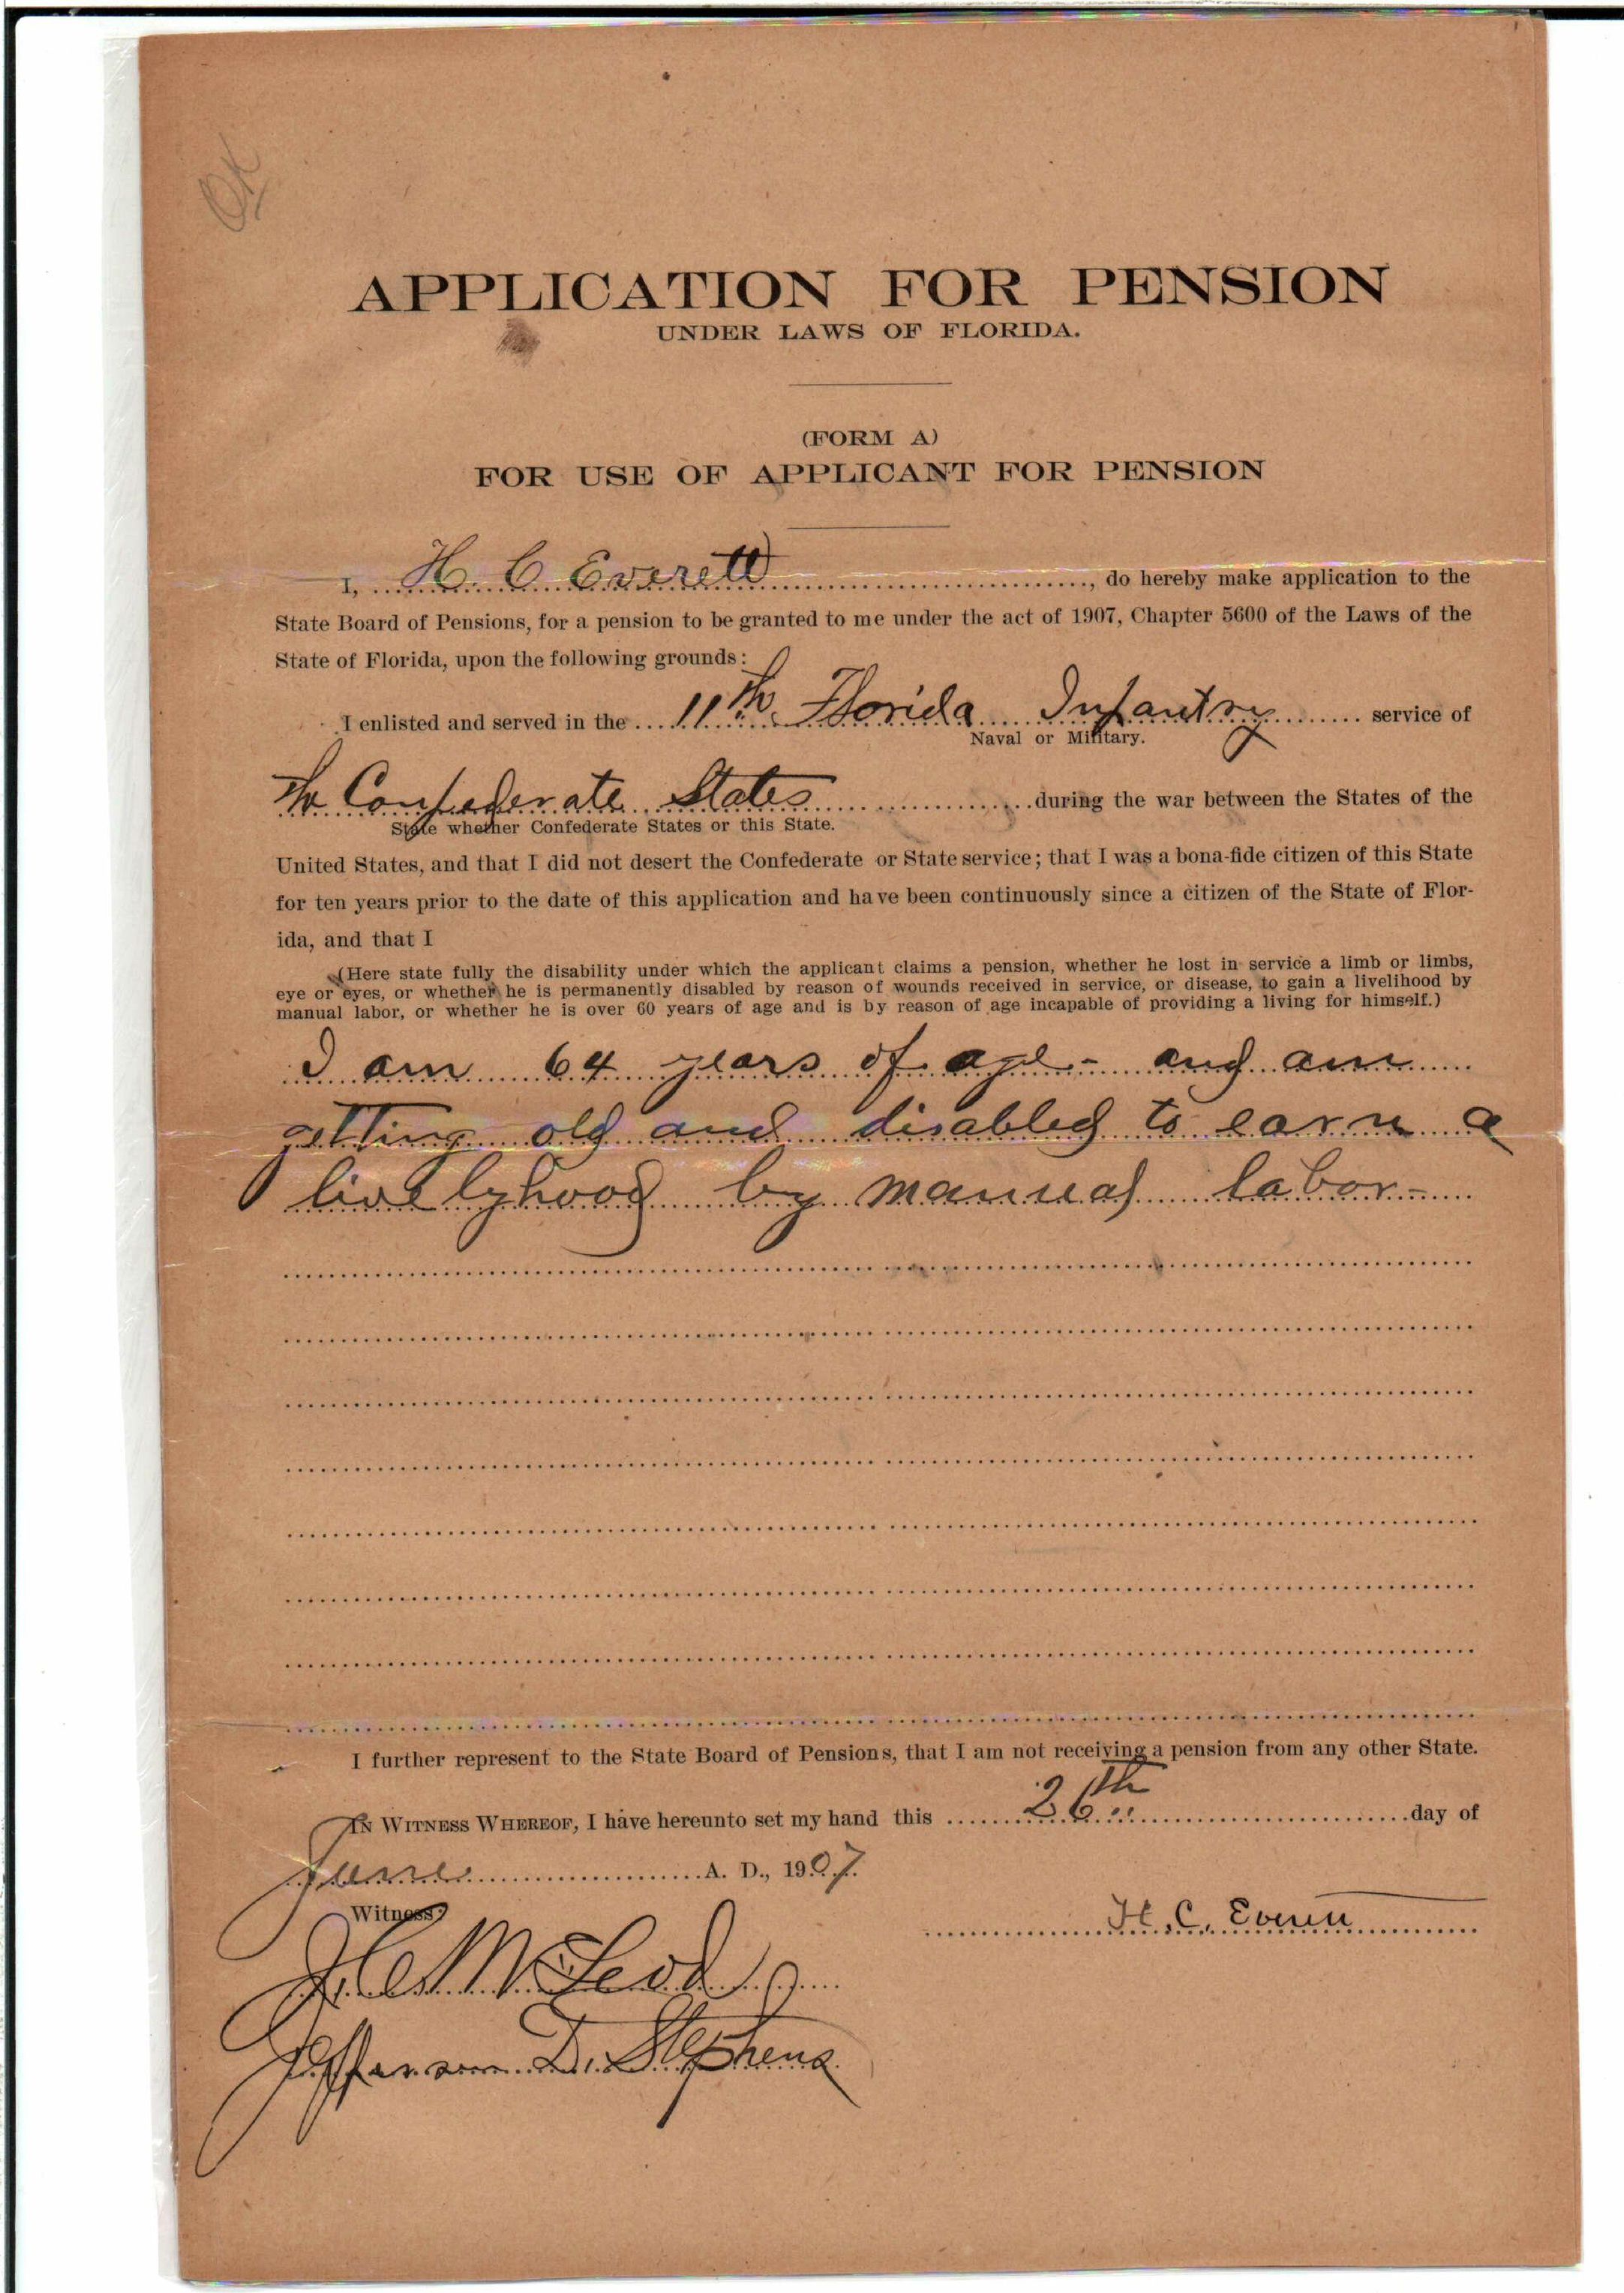 OK
APPLICATION FOR PENSION
UNDER LAWS OF FLORIDA.
(FORM A)
FOR USE OF APPLICANT FOR PENSION
I, H. C Everett, do hereby make application to the
State Board of Pensions, for a pension to be granted to me under the act of 1907, Chapter 5600 of the Laws of the
State of Florida, upon the following grounds:
I enlisted and served in the 11th Florida Infantry service of
Naval or Military.
the Confederate States during the war between the States of the
State whether Confederate States or this State.
United States, and that I did not desert the Confederate or State service; that I was a bona-fide citizen of this State
for ten years prior to the date of this application and have been continuously since a citizen of the State of Flor-
ida, and that I
(Here state fully the disability under which the applicant claims a pension, whether he lost in service a limb or limbs,
eye or eyes, or whether he is permanently disabled by reason of wounds received in service, or disease, to gain a livelihood by
manual labor, or whether he is over 60 years of age and is by reason of age incapable of providing a living for himself.)
I am 64 years of age - and am
getting old and disabled to earn a
livelyhood by manual labor -
I further represent to the State Board of Pensions, that I am not receiving a pension from any other State.
IN WITNESS WHEREOF, I have hereunto set my hand this 26th day of
June A. D., 1907.
Witness:
H. C. Everett
J. C. McLeod
Jefferson D. Stephens